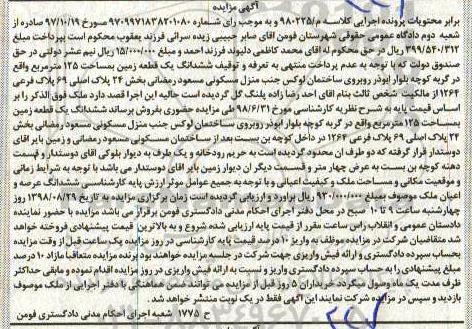 آگهی مزایده
برابر محتویات پرونده اجرایی کلاسه م/۹۸۰۲۲۵ و به موجب رای شماره ۹۷۰۹۹۷۱۸۳۸۲۰۱۰۸۰ مورخ ۹۷/۱۰/۱۹ صادره از
شعبه دوم دادگاه عمومی حقوقی شهرستان فومن آقای صابر حبیبی زیده سرائی فرزند یعقوب محکوم است بپرداخت مبلغ
۳۹۹/۵۴۰/۳۱۲ ریال در حق محکوم له آقای محمد کاظمی دلیوند فرزند احمد و مبلغ ۱۵/۰۰۰/۰۰۰ ریال نیم عشر دولتی در حق
صندوق دولت که با توجه به عدم پرداخت منتهی به تعرفه و توقیف ششدانگ یک قطعه زمین بمساحت ۱۲۵ مترمربع واقع
در گوچه بلوار ابوذر روبروی ساختمان لوکس جنب منزل مسکونی مسعود رمضانی بخش ۲۴ پلاک اصلی ۶۹ پلاک فرعی
۱۲۶۴ از مالکیت شخص ثالث بنام آقای احد رضا زاده پلنگ گل گردیده است حالیه این اجرا قصد دارد ملک فوق الذکر را بر
اساس قیمت پایه به شرح نظریه کارشناسی مورخ ۹۸/۶/۳۱ طی مزایده حضوری بفروش برساند ششدانگ یک قطعه زمین
بمساحت ۱۲۵ مترمربع واقع در گوچه بلوار ابوذر روبروی ساختمان لوکس جنب منزل مسکونی مسعود رمضانی بخش
۲۴ پلاک اصلی ۶۹ پلاک فرعی ۱۲۶۴ در داخل کوچه بن بست بعد از ساختمان مسکونی مسعود رمضانی و زمین بایر آقای
دوستدار قرار گرفته که دو طرف آن محدود گردیده است به حریم رودخانه و یک طرف به دیوار بلوکی آقای دوستدار و قسمت
دهنه کوچه بن بست به عرض چهار متر و قسمت دیگر آن دیوار زمین بایر آقای دوستدار می باشد با توجه به شرایط زمانی
و موقعیت مکانی و مساحت ملک و کیفیت اعیانی و با توجه به جمیع عوامل موثر ارزش پایه کارشناسی ششدانگ عرصه و
اعیان ملک موصوف بمبلغ ۹۳۰/۰۰۰/۰۰۰ ریال براورد و ارزیابی گردیده است زمان برگزاری مزایده به تاریخ ۱۳۹۸/۰۸/۲۹
چهارشنبه ساعت ۹ تا ۱۰ صبح در محل دفتر اجرای احکام مدنی دادگستری فومن برقرار می باشد مزایده با حضور نماینده
دادستان عمومی و انقلاب راس ساعت مقرر از قیمت پایه ارزیابی شده شروع و به بالاترین قیمت پیشنهادی فروخته خواهد
شد متقاضیان شرکت در مزایده موظف به واریز ۱۰ درصد قیمت پایه کارشناسی در روز مزایده یک ساعت قبل از وقت مزایده
بحساب سپرده دادگستری و ارائه فیش واریزی جهت شرکت در جلسه مزایده خواهند بود برنده مزایده متعاقبا مازاد ۱۰ درصد
مبلغ پیشنهادی را به حساب سپرده دادگستری واریز و نسبت به ارائه فیش واریزی در روز مزایده اقدام نموده و مابقی حداکثر
ظرف مدت یک ماه وصول میگردد خریداران ۵ روز قبل از مزایده می توانند ضمن هماهنگی با دفتر اجرایی از ملک موصوف
بازدید و سپس در مزایده شرکت نمایند این آگهی فقط در یک نوبت منتشر خواهد شد.
ح ۱۷۷۵ شعبه اجرای احکام مدنی دادگستری فومن